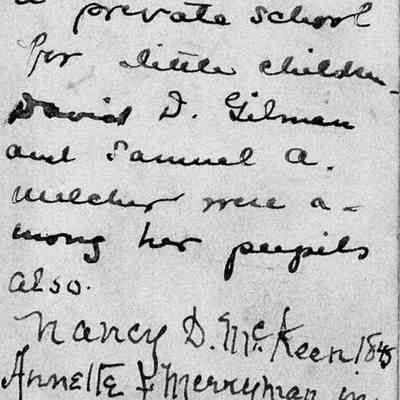 a private school
for little children.
David D. Gilman
and Samuel A.
Melcher were a-
mong her pupils
also.
Nancy D. McKeen 1845
Annette F Merryman in